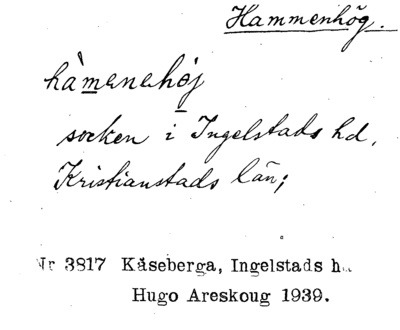 Hammenhög.
hàmenehöj
socken i Ingelstads hd,
Kristianstads län;
Nr 3817 Kåseberga, Ingelstads h
Hugo Areskoug 1939.